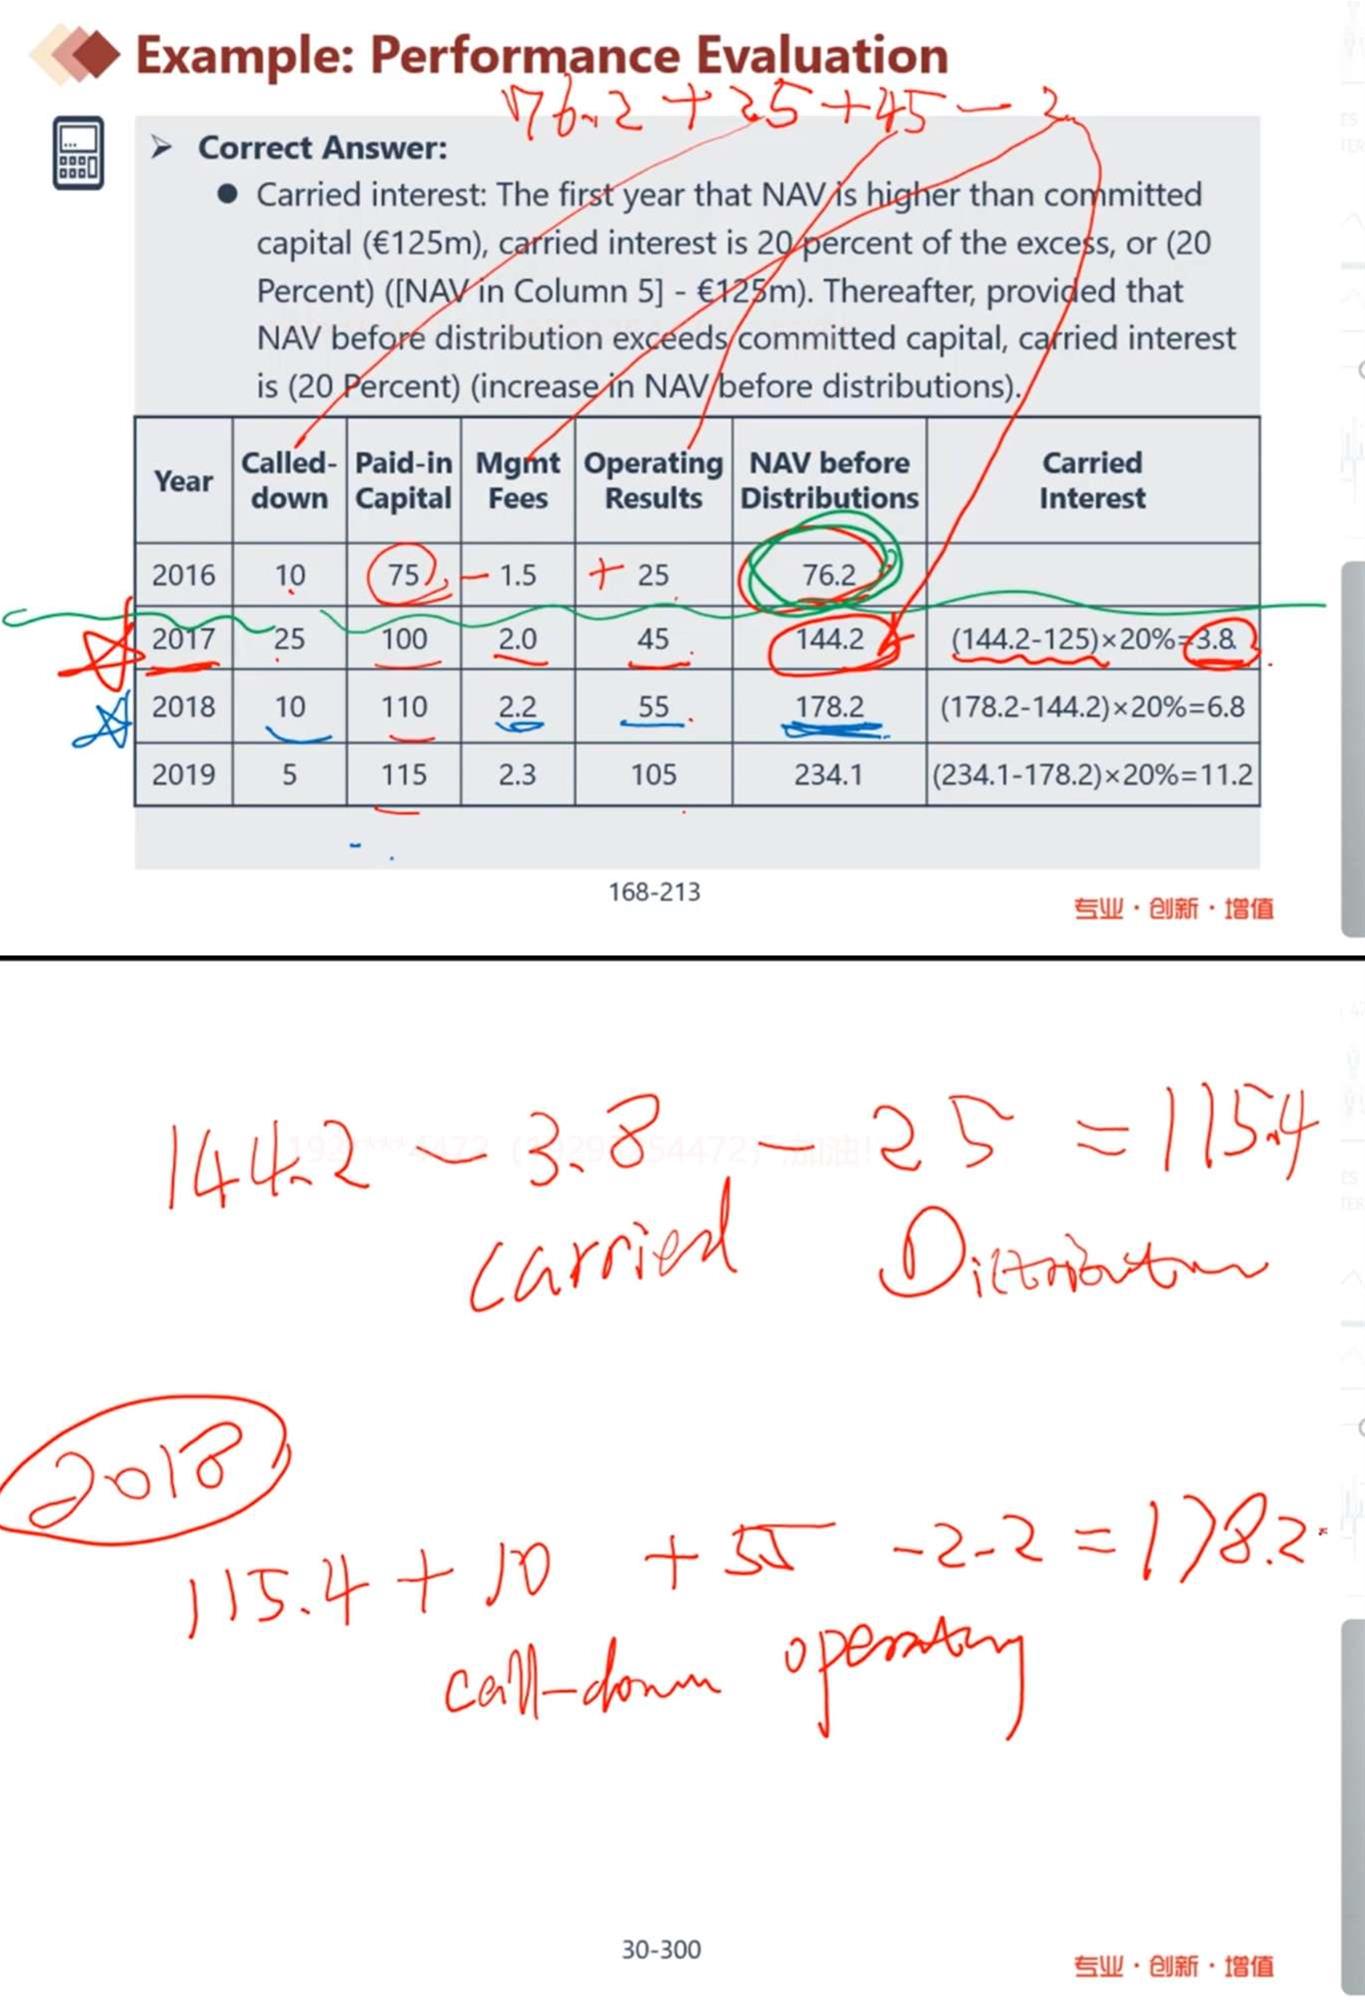 Example: Performance Evaluation
76.2 + 25 + 45 - 2
➢ Correct Answer:
● Carried interest: The first year that NAV is higher than committed
capital (€125m), carried interest is 20 percent of the excess, or (20
Percent) ([NAV in Column 5] - €125m). Thereafter, provided that
NAV before distribution exceeds committed capital, carried interest
is (20 Percent) (increase in NAV before distributions).
Year Called-down Paid-in Capital Mgmt Fees Operating Results NAV before Distributions Carried Interest
2016 10 75 - 1.5 + 25 76.2
2017 25 100 2.0 45 144.2 (144.2-125)×20%=3.8
2018 10 110 2.2 55 178.2 (178.2-144.2)×20%=6.8
2019 5 115 2.3 105 234.1 (234.1-178.2)×20%=11.2
168-213
专业·创新·增值
144.2 - 3.8 - 25 = 115.4
carried Distribution
2018
115.4 + 10 + 55 - 2.2 = 178.2
call-down operating
30-300
专业·创新·增值